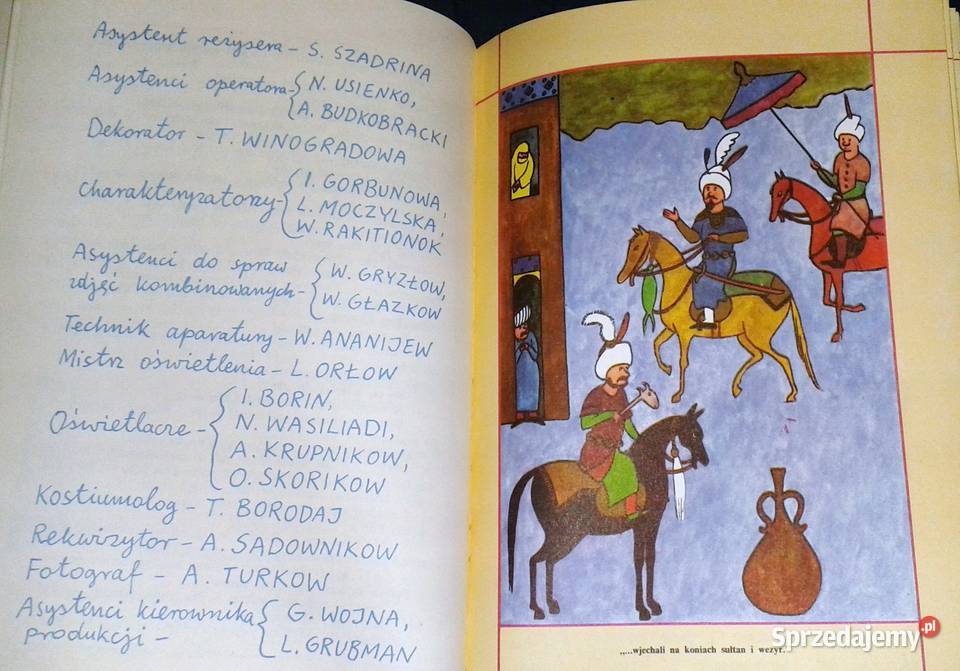 Asystent reżysera – S. SZADRINA
Asystenci operatora – N. USIENKO,
A. BUDKOBRACKI
Dekorator – T. WINOGRADOWA
Charakteryzatorzy – I. GORBUNOWA,
L. MOCZYLSKA,
W. RAKITIONOK
Asystenci do spraw
zdjęć kombinowanych – W. GRYZŁOW,
W. GŁAZKOW
Technik aparatury – W. ANANIJEW
Mistrz oświetlenia – L. ORŁOW
Oświetlacze – I. BORIN,
N. WASILIADI,
A. KRUPNIKOW,
O. SKORIKOW
Kostiumolog – T. BORODAJ
Rekwizytor – A. SADOWNIKOW
Fotograf – A. TURKOW
Asystenci kierownika
produkcji – G. WOJNA,
L. GRUBMAN
„...wjechali na koniach sułtan i wezyr."
Sprzedajemy.pl